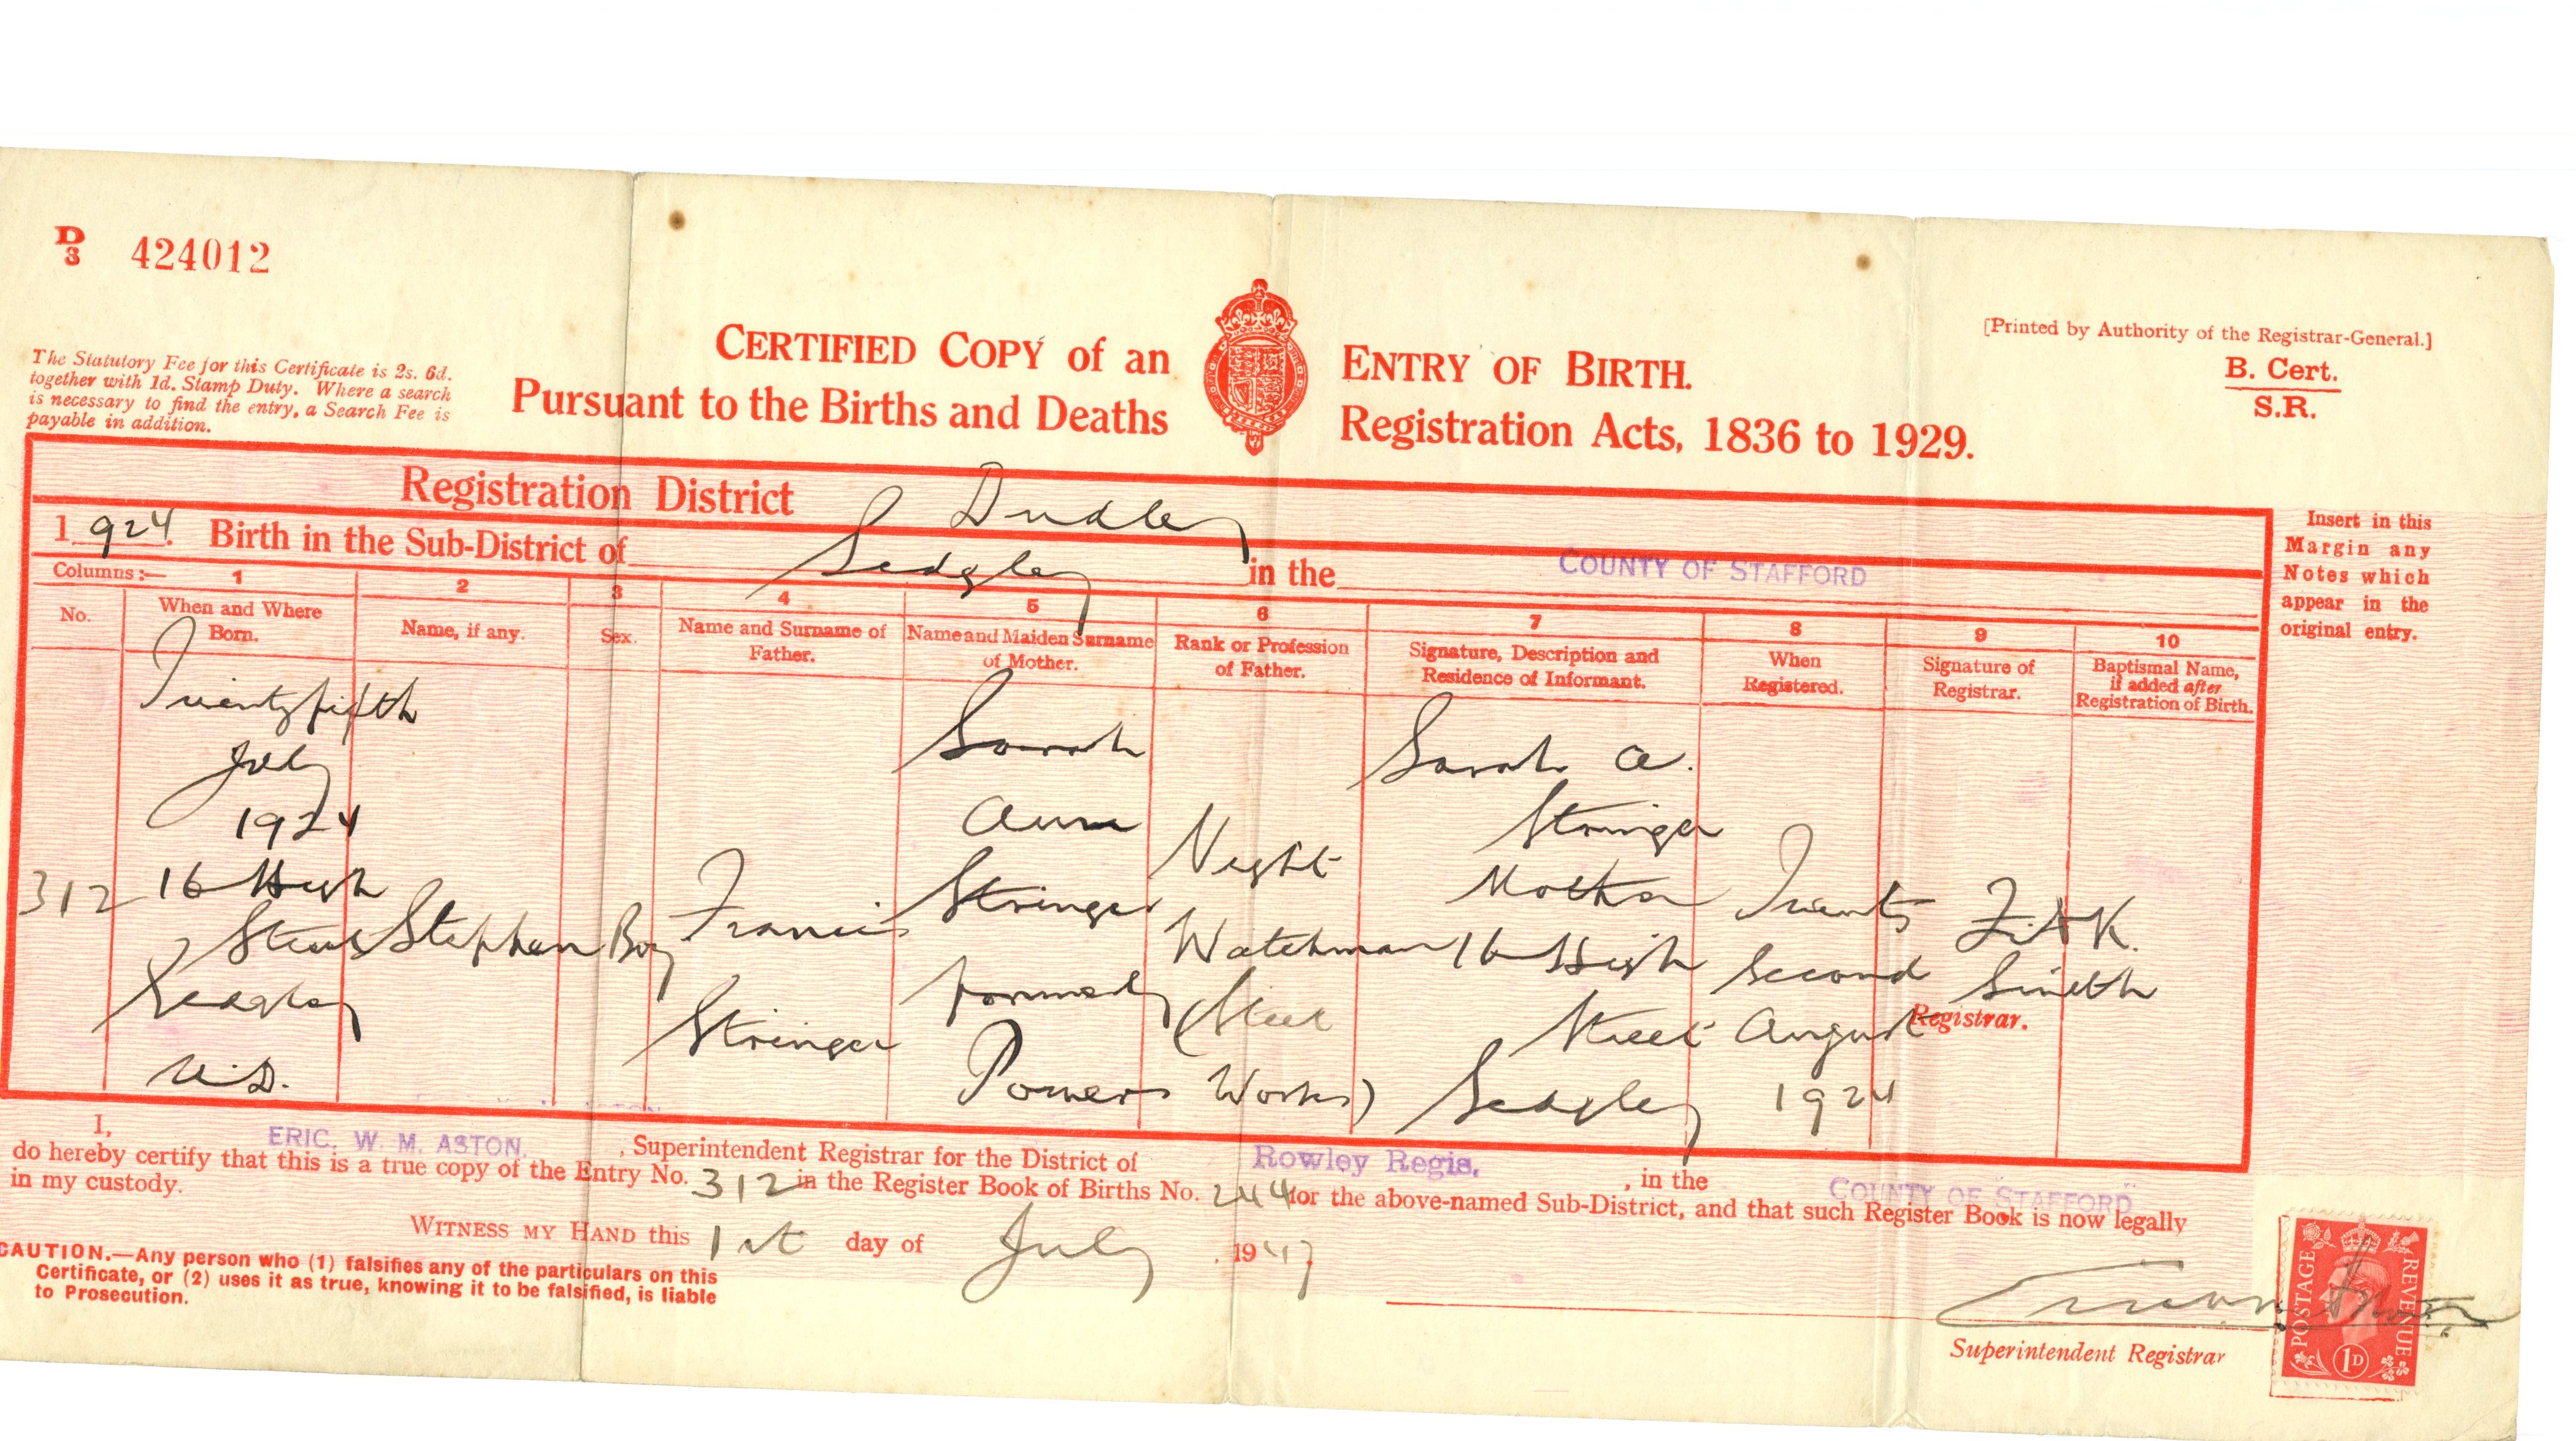 D/3 424012
The Statutory Fee for this Certificate is 2s. 6d.
together with 1d. Stamp Duty. Where a search
is necessary to find the entry, a Search Fee is
payable in addition.
CERTIFIED COPY of an ENTRY OF BIRTH.
Pursuant to the Births and Deaths Registration Acts, 1836 to 1929.
[Printed by Authority of the Registrar-General.]
B. Cert.
S.R.
Registration District Dudley
1924. Birth in the Sub-District of Sedgley in the COUNTY OF STAFFORD
Insert in this
Margin any
Notes which
appear in the
original entry.
Columns:— 1 2 3 4 5 6 7 8 9 10
No.
When and Where
Born.
Name, if any.
Sex.
Name and Surname of
Father.
Name and Maiden Surname
of Mother.
Rank or Profession
of Father.
Signature, Description and
Residence of Informant.
When
Registered.
Signature of
Registrar.
Baptismal Name,
if added after
Registration of Birth.
312
Twenty fifth
July
1924
16 High
Street
Sedgley
U.D.
Stephen
Boy
Francis
Stringer
Sarah
Ann
Stringer
formerly
Powers
Night
Watchman
(Steel
Works)
Sarah A.
Stringer
Mother
16 High
Street
Sedgley
Twenty
Second
August
1924
F.A.K.
Smith
Registrar.
I, ERIC. W. M. ASTON. , Superintendent Registrar for the District of Rowley Regis. , in the COUNTY OF STAFFORD
do hereby certify that this is a true copy of the Entry No. 312 in the Register Book of Births No. 244 for the above-named Sub-District, and that such Register Book is now legally
in my custody.
WITNESS MY HAND this 1st day of July . 1947
CAUTION.—Any person who (1) falsifies any of the particulars on this
Certificate, or (2) uses it as true, knowing it to be falsified, is liable
to Prosecution.
Superintendent Registrar
POSTAGE REVENUE
1D